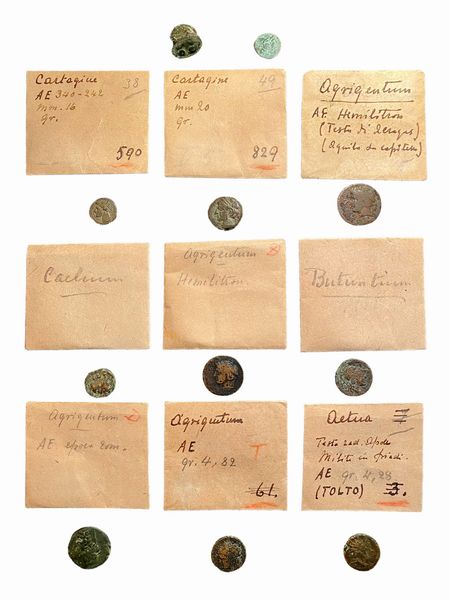 Cartagine 38
AE 340-242
mm. 16
gr.
590
Cartagine 49
AE
mm 20
gr.
829
Agrigentum
AE Hemilitron
(Testa di
(Aquila su capitello)
Caelium
Agrigentum 8
Hemilitron.
Butuntum
Agrigentum 2
AE epoca rom.
Agrigentum
AE
gr. 4,82 T
61.
Aetna
Testa rad. Apollo
Milite in piedi
AE gr. 4,28
(TOLTO) 3.